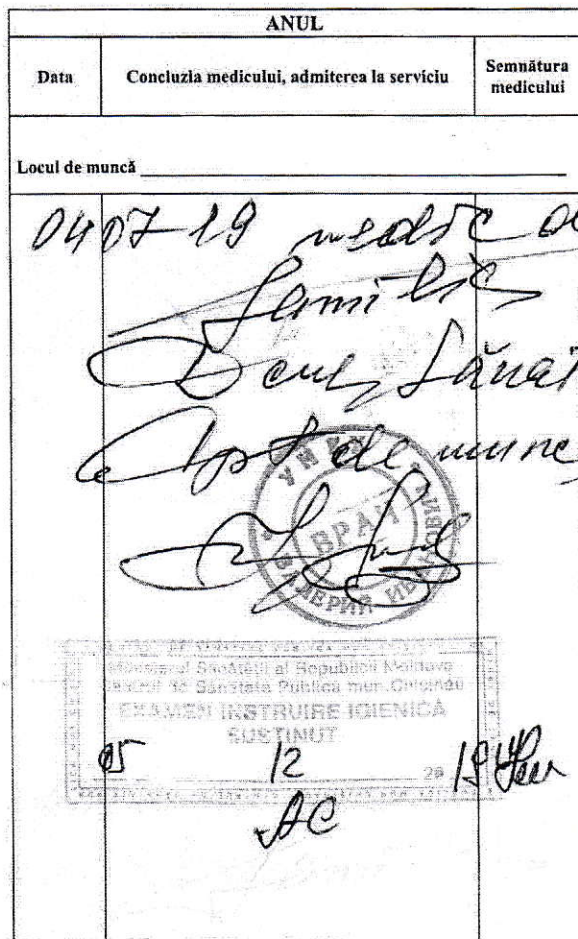 ANUL
Data Concluzia medicului, admiterea la serviciu Semnătura medicului
Locul de muncă
04 07-19 medic de
familie
Sănăt
Apt de munc
ВРАЧ
ВАЛЕРИЙ ИВАНОВИЧ
Ministerul Sănătăţii al Republicii Moldova
Centrul de Sănătate Publică mun. Chişinău
EXAMEN INSTRUIRE IGIENICĂ
SUSŢINUT
05 12 20 19
AC